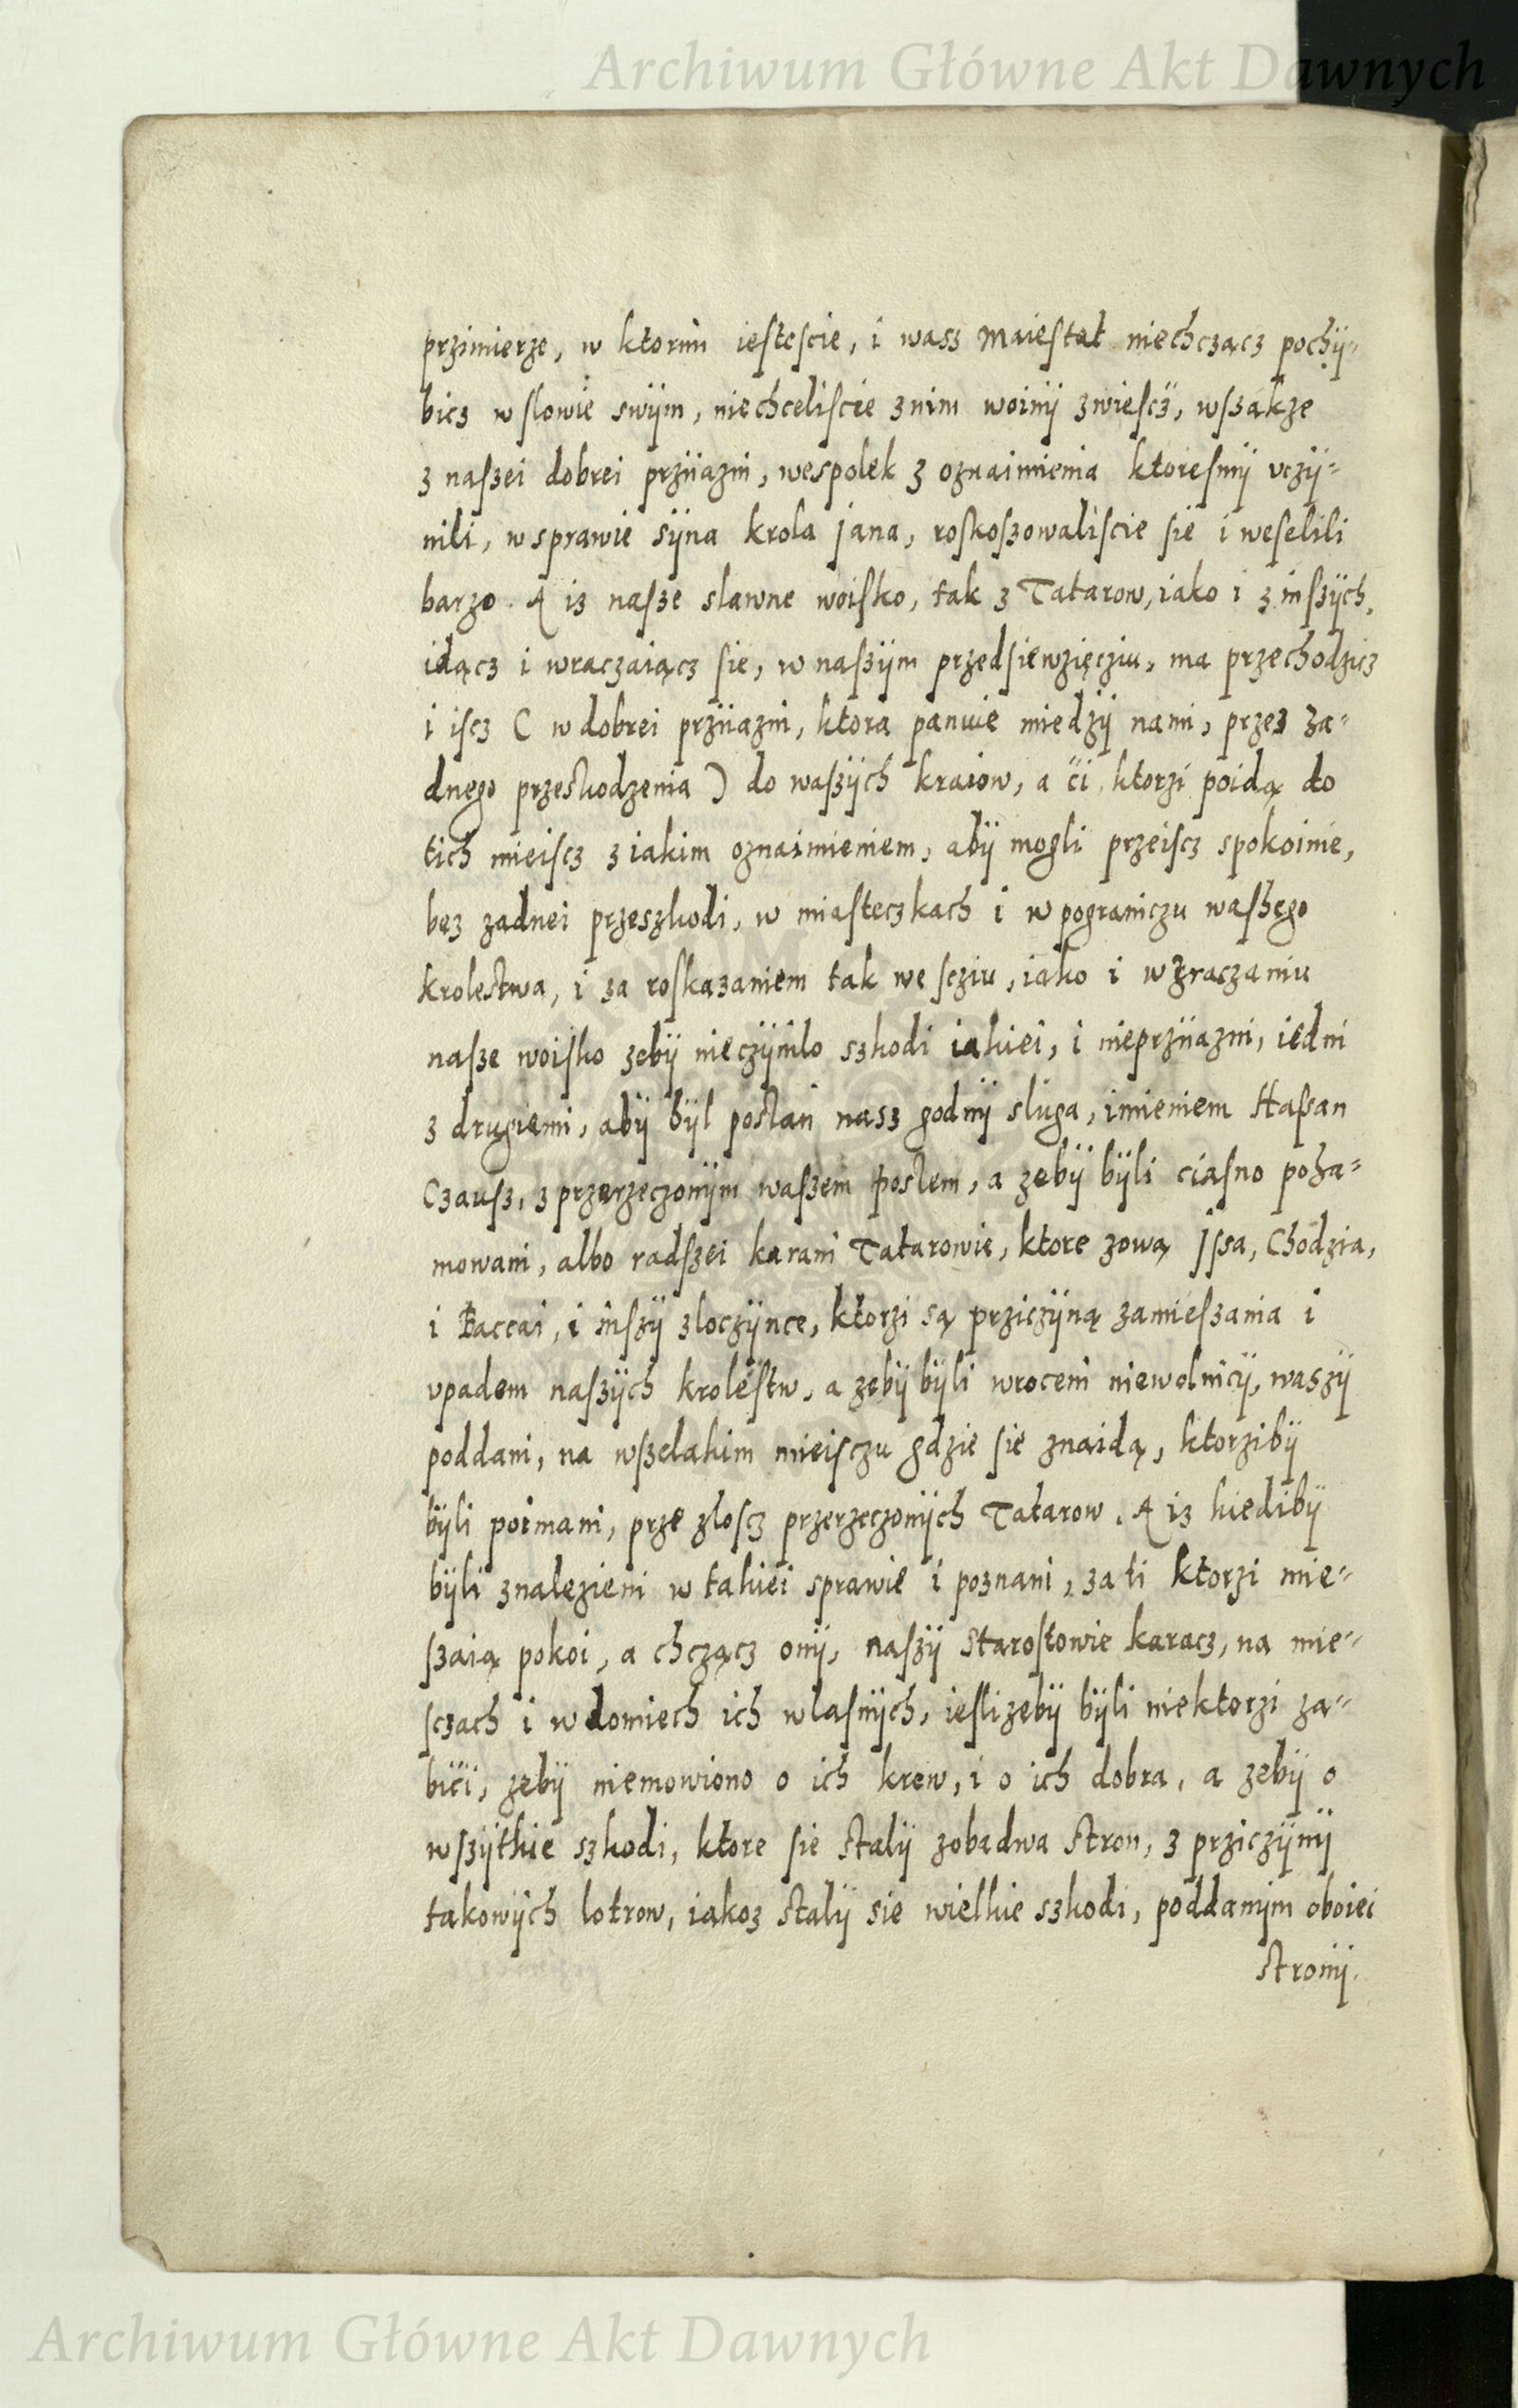 Archiwum Główne Akt Dawnych
przimierze, w ktorim iestescie, i wasz Maiestat niechcząćz pochÿ-
bicz w slowie swÿm, niechceliscie znim woinÿ zwiescz, wszakze
z naszei dobrei prziiazni, wespolek z oznaimienia ktoresmÿ vczÿ-
nili, w sprawie sÿna krola jana, roskoszowaliscie sie i weselili
barzo. A iz nasze slawne woisko, tak z Tatarow, iako i z inszÿch,
idącz i wraczaiącz sie, w naszÿm przedsiewzięcziu, ma przechodzicz
i iscz ( w dobrei prziiazni, ktora panuie miedzÿ nami, przez za-
dnego przeskodzenia ) do waszÿch kraiow, a ci ktorzi poidą do
tich mieiscz z iakim oznaimieniem, abÿ mogli przeiscz spokoinie,
bez zadnei przeszkodi, w miasteczkach i w pograniczu waszego
krolestwa, i za roskazaniem tak we scziu, iako i wzraczaniu
nasze woisko zebÿ nieczÿnilo szkodi iakiei, i nieprziiazni, iedni
z drugiemi, abÿ bÿl poslan nasz godnÿ sluga, imieniem Hassan
Czausz, z przerzeczonÿm waszem poslem, a zebÿ bÿli ciasno poha-
mowani, albo radszei karani Tatarowie, ktore zową Jssa, Chodzia,
i Baccai, i inszÿ zloczÿnce, ktorzi są prziczÿną zamieszania i
vpadem naszÿch krolestw, a zebÿ bÿli wroceni niewolnicÿ, waszÿ
poddani, na wszelakim mieisczu gdzie sie znaidą, ktorzibÿ
bÿli poimani, prze zloscz przerzeczonÿch Tatarow. A iz kiedibÿ
bÿli znalezieni w takiei sprawie i poznani, za ti ktorzi mie-
szaią pokoi, a chcząćz onÿ, naszÿ Starostowie karacz, na mie-
sczach i w domiech ich wlasnÿch, ieslizebÿ bÿli niektorzi za-
bici, zebÿ niemowiono o ich krew, i o ich dobra, a zebÿ o
wszÿtkie szkodi, ktore sie stalÿ zobadwa stron, z prziczÿnÿ
takowÿch lotrow, iakoz stalÿ sie wielkie szkodi, poddanim oboiei
stronÿ.
Archiwum Główne Akt Dawnych